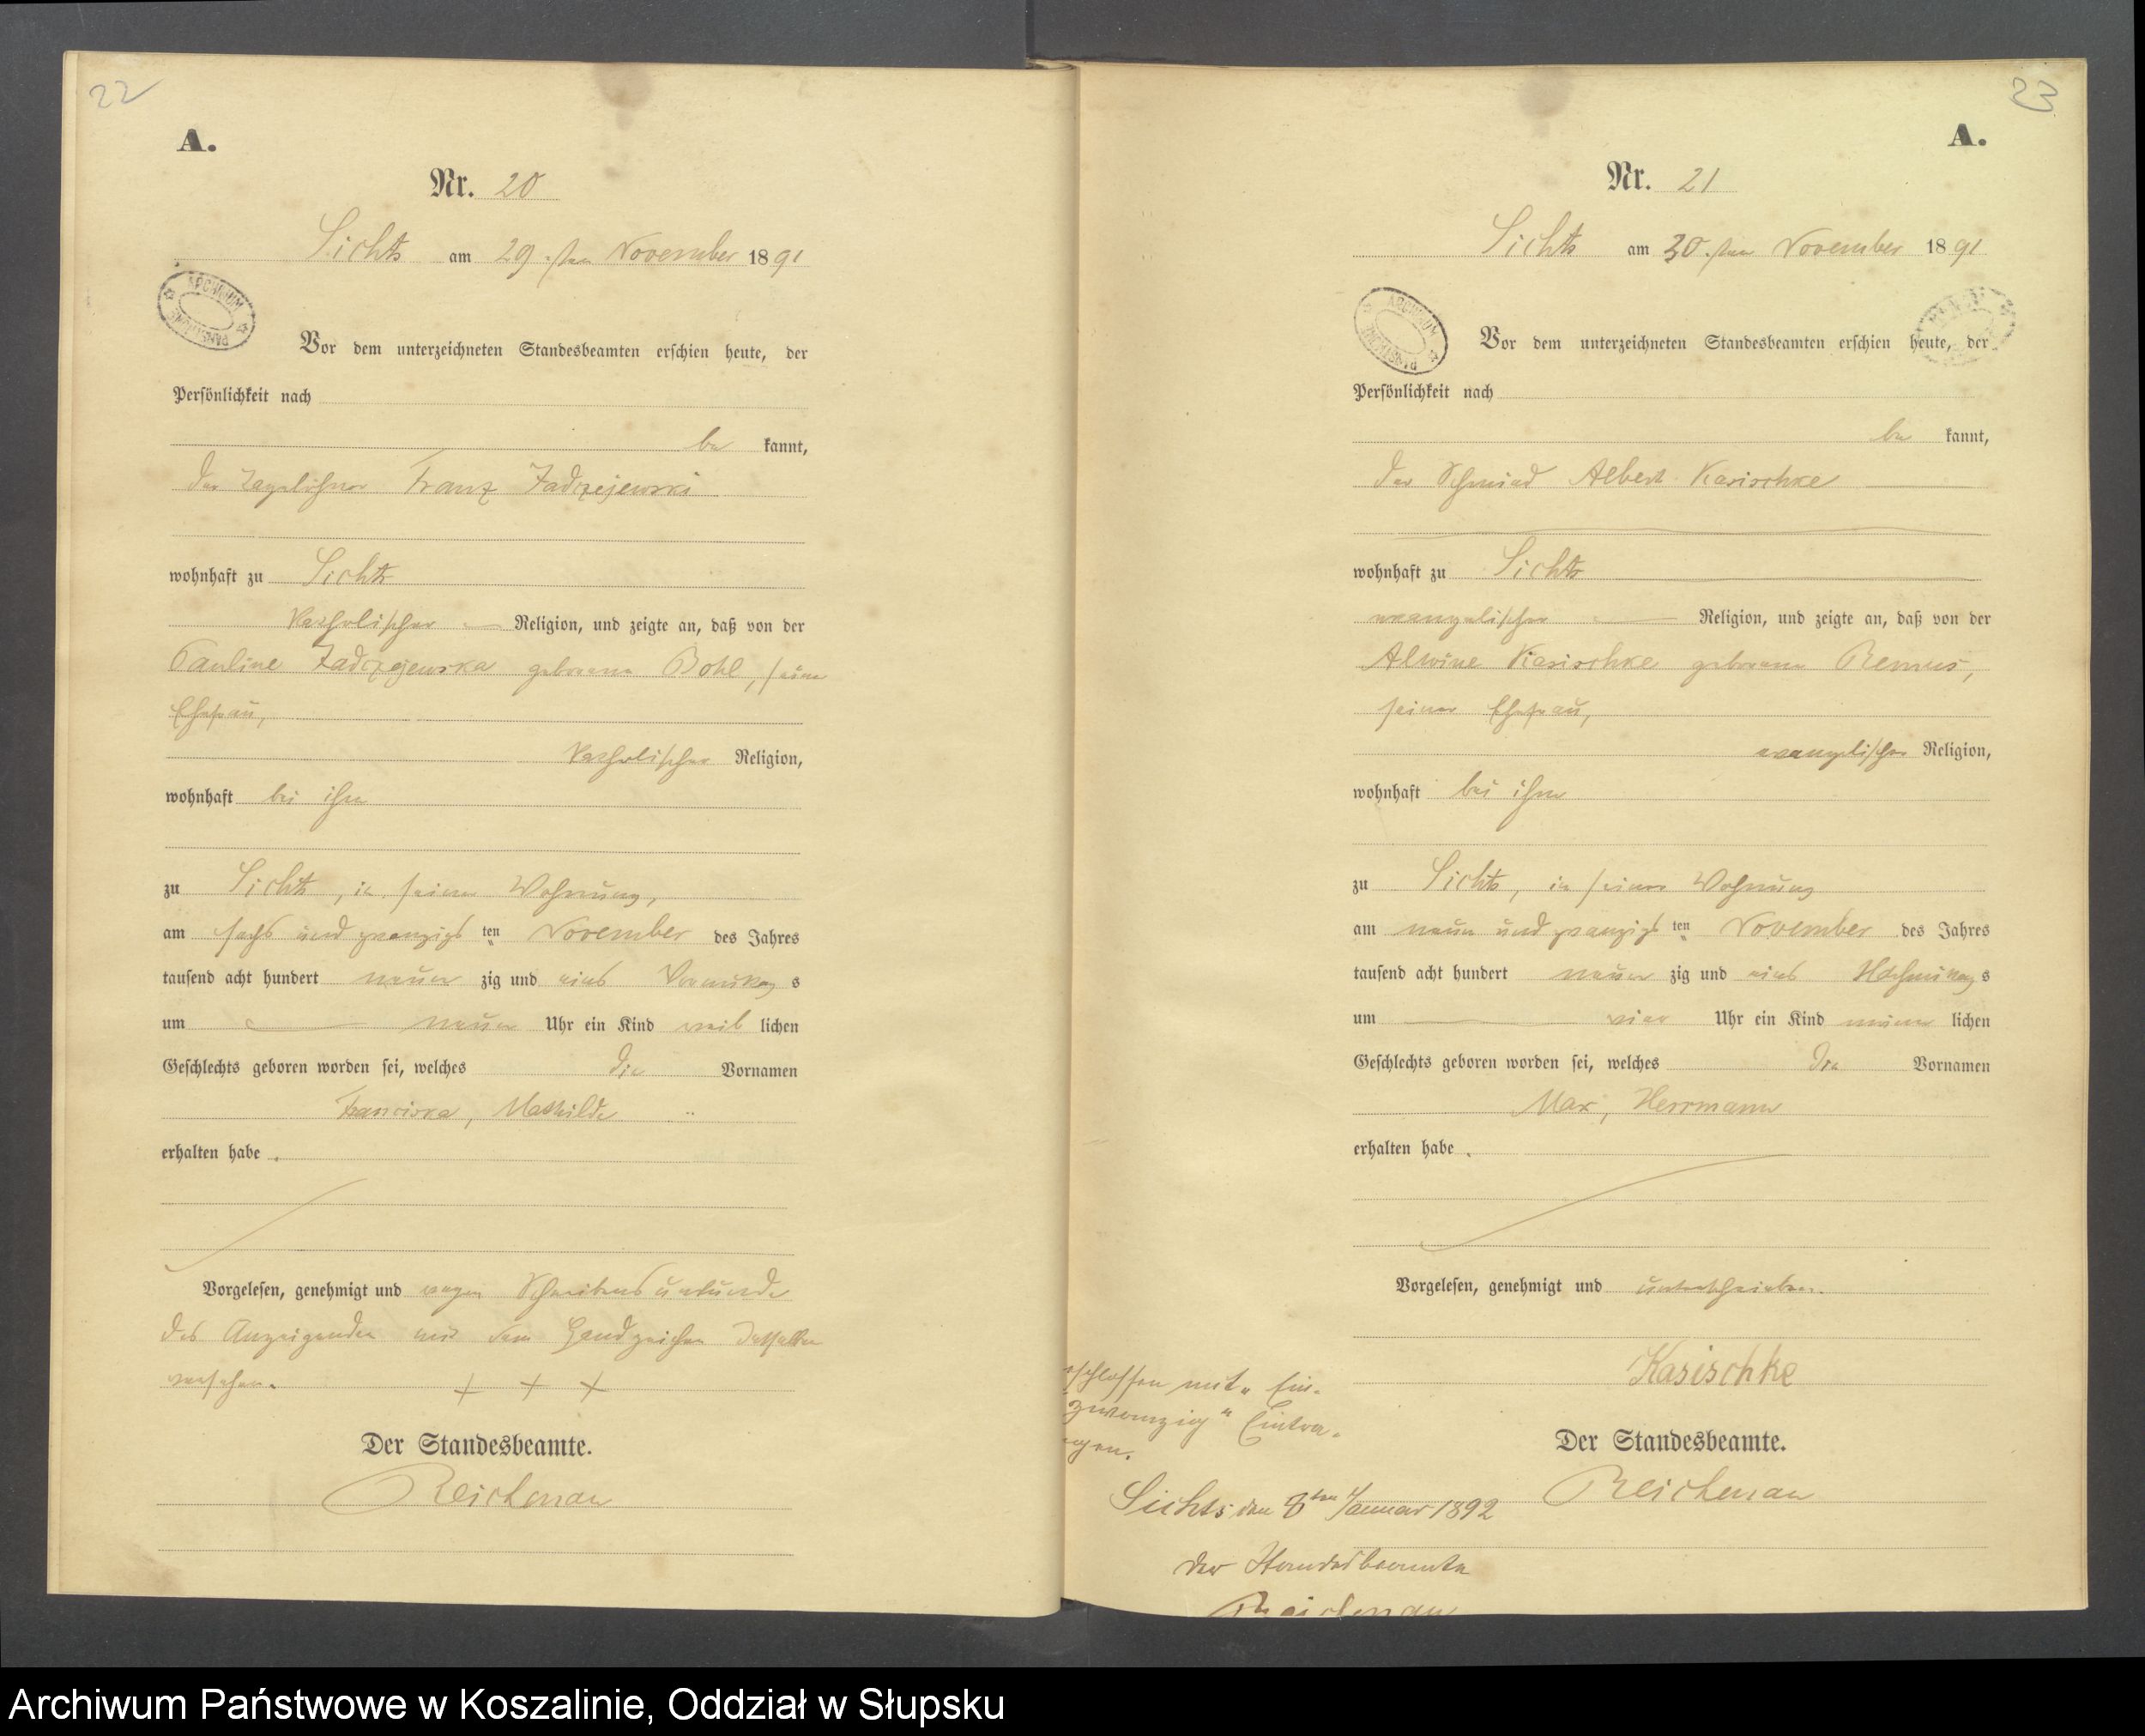 22
A.
Nr. 20
Sichts am 29.ten November 1891
ARCHIWUM PAŃSTWOWE
Vor dem unterzeichneten Standesbeamten erschien heute, der
Persönlichkeit nach
be kannt,
der Tagelöhner Franz Jadrzejewski
wohnhaft zu Sichts
katholischer Religion, und zeigte an, daß von der
Pauline Jadrzejewska geborene Bohl, seine
Ehefrau,
katholischer Religion,
wohnhaft bei ihm
zu Sichts, in seiner Wohnung,
am sechs und zwanzigs ten November des Jahres
tausend acht hundert neun zig und eins Vormittag s
um neun Uhr ein Kind weib lichen
Geschlechts geboren worden sei, welches die Vornamen
Franciska, Mathilde
erhalten habe.
Vorgelesen, genehmigt und wegen Schreibensunkunde
des Anzeigenden mit dem Handzeichen desselben
versehen. + + +
Der Standesbeamte.
Reichenau
23
A.
Nr. 21
Sichts am 30.ten November 1891
ARCHIWUM PAŃSTWOWE
Vor dem unterzeichneten Standesbeamten erschien heute, der
Persönlichkeit nach
be kannt,
der Schmied Albert Kasischke
wohnhaft zu Sichts
evangelischer Religion, und zeigte an, daß von der
Alwine Kasischke geborene Remus,
seiner Ehefrau,
evangelischer Religion,
wohnhaft bei ihm
zu Sichts, in seiner Wohnung
am neun und zwanzigs ten November des Jahres
tausend acht hundert neun zig und eins Nachmittag s
um vier Uhr ein Kind männ lichen
Geschlechts geboren worden sei, welches die Vornamen
Max, Herrmann
erhalten habe.
Vorgelesen, genehmigt und unterschrieben.
Kasischke
Der Standesbeamte.
Reichenau
schlossen mit „Ein-
zwanzig" Eintra-
gen.
Sichts den 8ten Januar 1892
Der Standesbeamte
Reichenau
Archiwum Państwowe w Koszalinie, Oddział w Słupsku